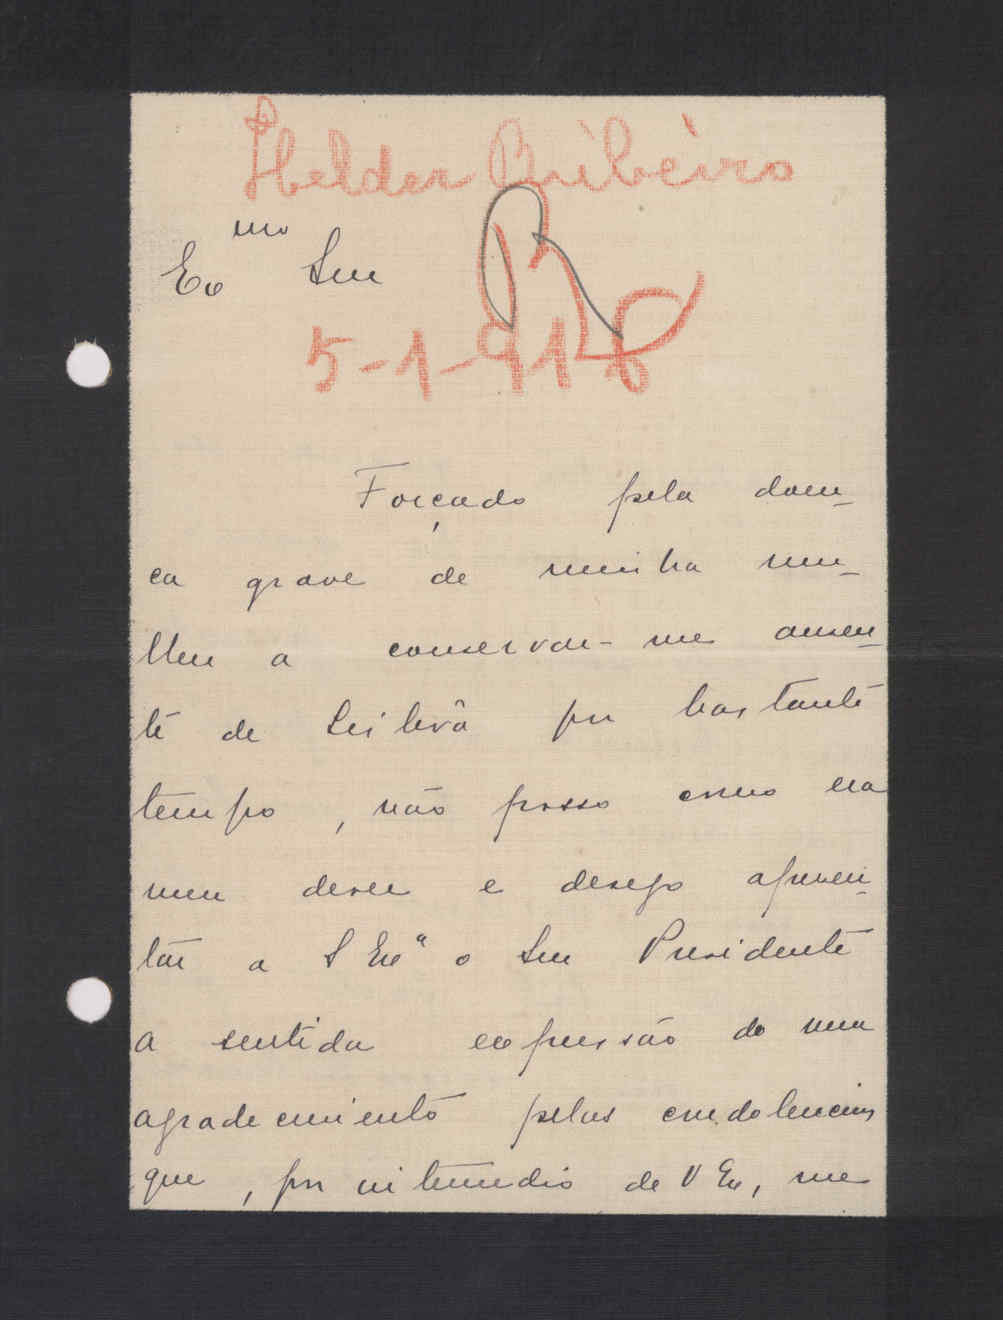 Helder Ribeiro
Exmo Snr
R
5-1-918
Forçado pela doen-
ça grave de minha mu-
lher a conservar-me ausen-
te de Lisboa por bastante
tempo, não posso como era
meu dever e desejo apresen-
tar a S Exª o Snr Presidente
a sentida expressão do meu
agradecimento pelas condolencias
que, por intermedio de V Ex, me